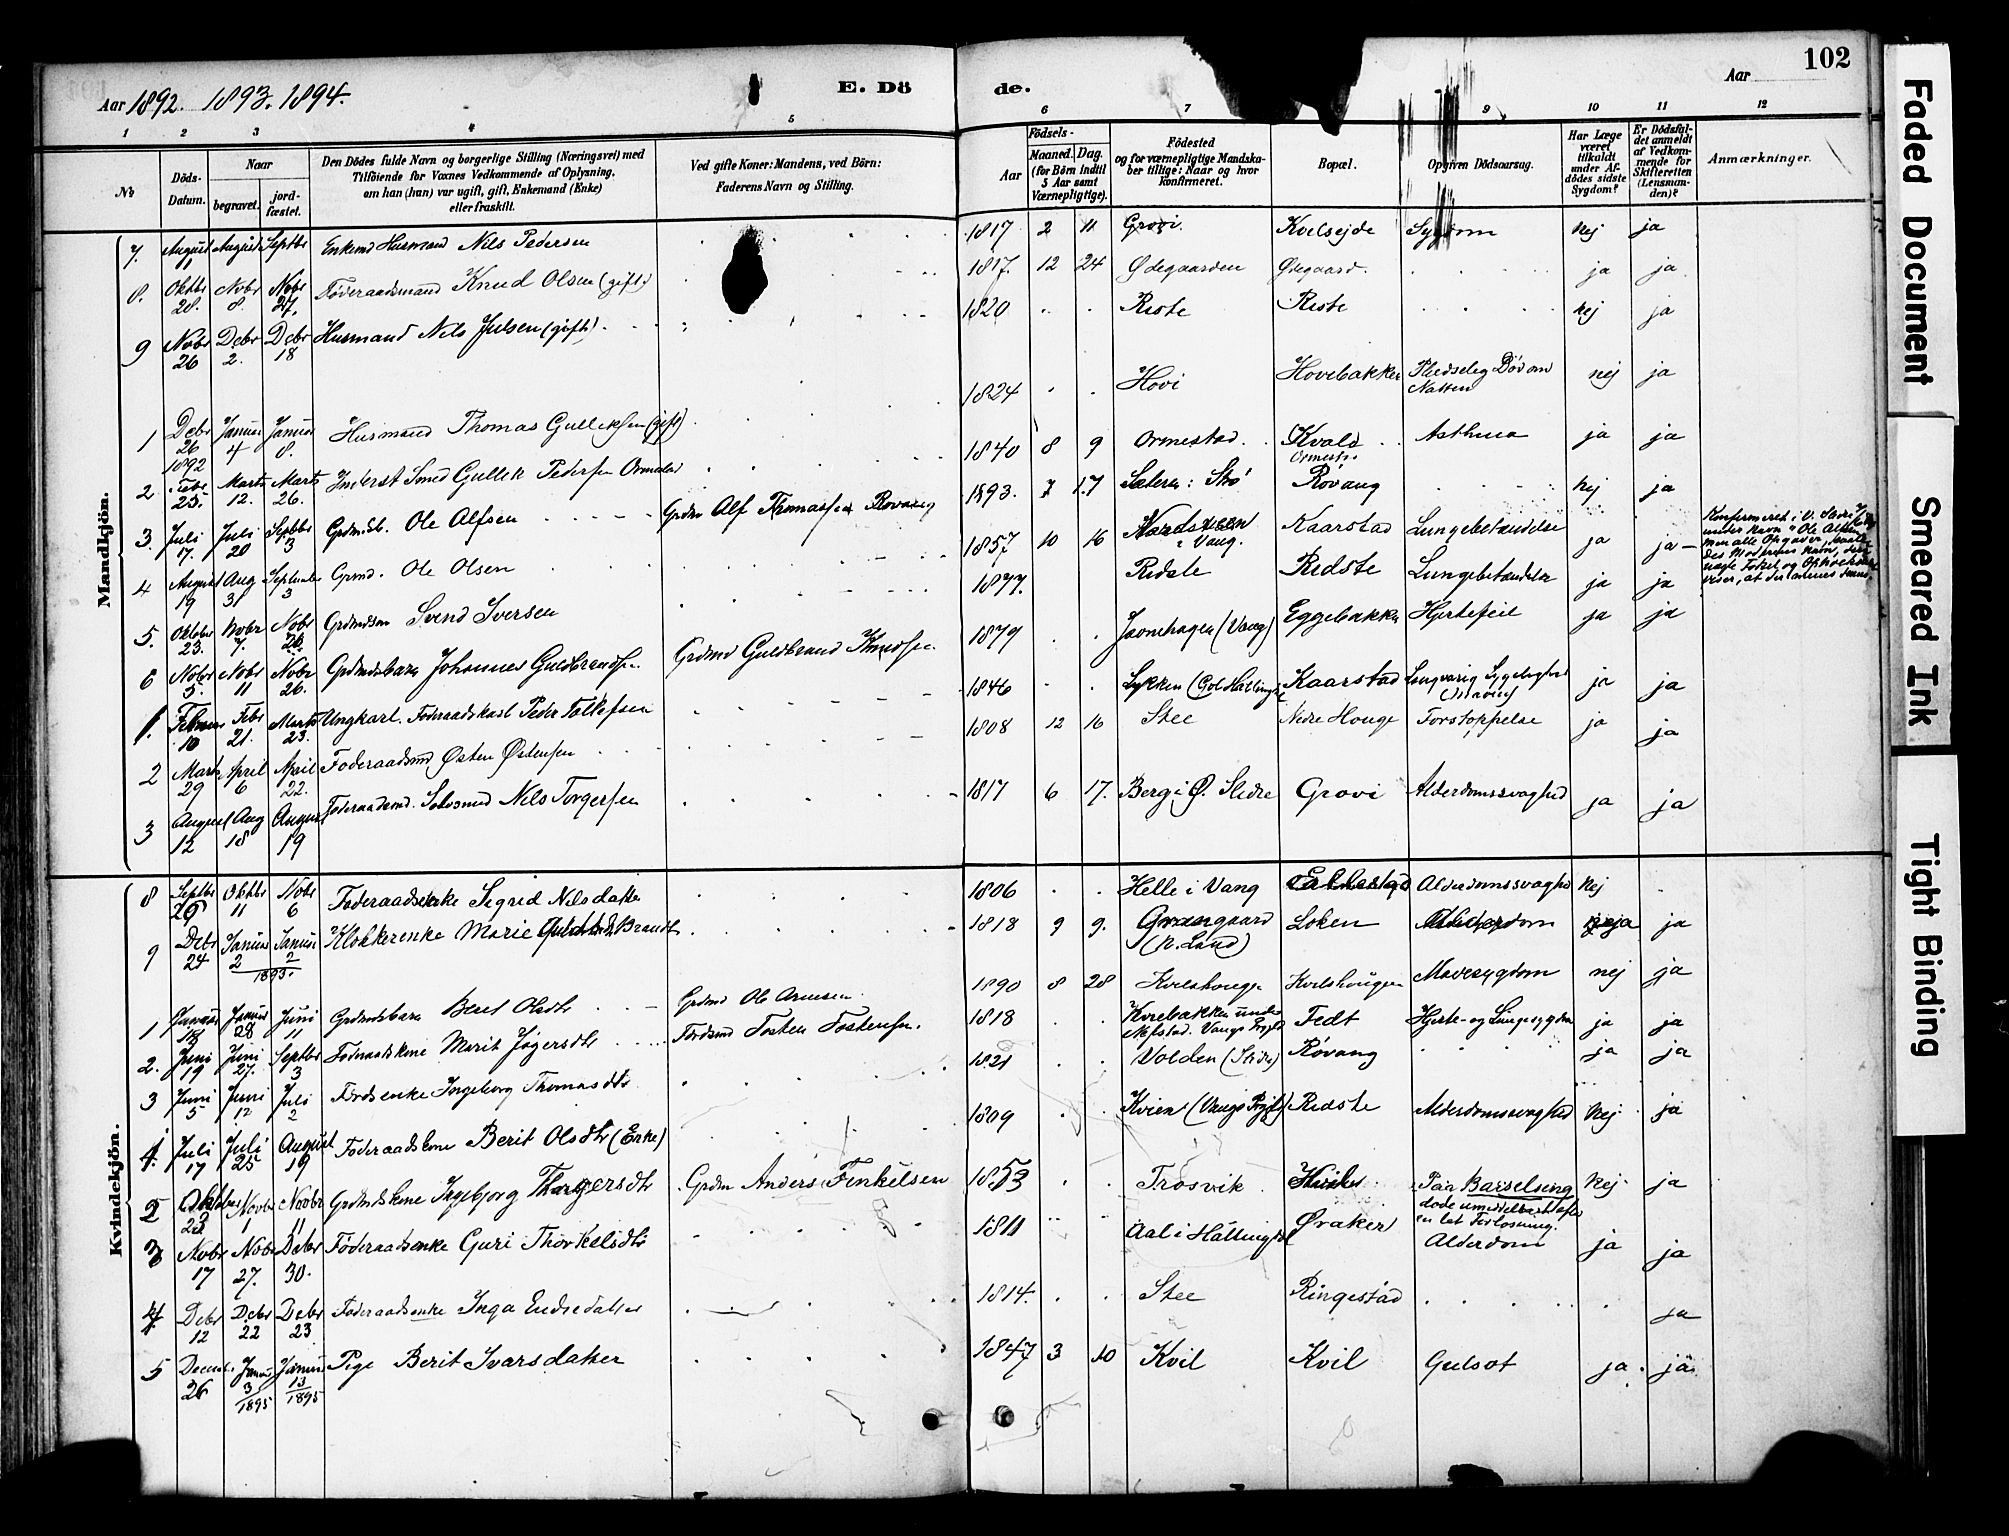 102
Aar 1892. 1893. 1894.
E. Dö
de.
Aar
1 2 3 4 5
6 7 9 10 11 12
No
Döds-Datum.
Naar
begravet.
jord-fæstet.
Den Dödes fulde Navn og borgerlige Stilling (Næringsvei) med
Tilföiende for Voxnes Vedkommende af Oplysning,
om han (hun) var ugift, gift, Enkemand (Enke)
eller fraskilt.
Ved gifte Koner: Mandens, ved Börn:
Faderens Navn og Stilling.
Födsels-
Aar
Maaned. Dag.
(for Börn indtil
5 Aar samt
Værnepligtige).
Födested
og for værnepligtige Mandska-
ber tillige: Naar og hvor
konfirmeret.
Bopæl.
Opgiven Dödsaarsag.
Har Læge
været
tilkaldt
under Af-
dödes sidste
Sygdom?
Er Dödsfal-
det anmeldt
af Vedkom-
mende for
Skifteretten
(Lensman-
den)?
Anmærkninger.
Mandkjön.
7. August August Septbr Enkemd Husmand Nils Pedersen 1817 2 11 Grovi. Kvelsejde Sygdom nej ja
8. Oktbr 28. Novbr 8. Novbr 27. Föderaadsmand Knud Olsen (gift) 1817. 12 24 Ødegaarden Ødegaard. ja ja
9 Novbr 26 Debr 2. Debr 18 Husmand Nils Julsen (gift) 1820 Riste Riste nej ja
1 Debr 26 1892 Januar 4 Januar 8. Husmand Thomas Gulleksen (gift) 1824 Hovi Hovebakken Pludselig Död om Natten nej ja
2 Febr 25. Marts 12. Marts 26. Inderst Smed Gullik Pedersen Ormestad 1840 8 9 Ormestad Kvale Ormestad Asthma ja ja
3. Juli 17. Juli 20 Septbr 3 Grdmdsb. Ole Alfsen Grdm Alf Thomassen Rovang 1893. 7 17 Sæteren: Stö Røvang nej ja
4 August 19 Aug 31 September 3 Grmd. Ole Olsen 1857 10 16 i Vang. Kaarstad Lungebetændelse ja ja
5. Oktober 23. Novbr 7. Novbr 26. Grdmdsøn Svend Iversen 1877. Ridste Redste Lungebetændelse ja ja
6 Novbr 5. Novbr 11 Novbr 26. Grdmdsbarn Johannes Guldbrandsen Grdmd Guldbrand Knudsen 1879 (Vang) Eggebakken Hjertefeil ja ja
1. Februar 10 Febr 21. Marts 23. Ungkarl. Föderaadskarl Peder Tollefsen 1846 Lykken (Gol Hallingd Kaarstad Langvarig Sygelighed ja ja
2 Marts 29 April 6 April 22. Föderaadsmd Østen Østensen 1808 12 16 Stee Nedre Houge Forstoppelse ja ja
3 August 12 Aug 18 August 19 Föderaadsmd. Nils Torgersen 1817 6 17. Berg i Ø. Slidre Grovi Alderdomssvaghed ja ja
Konfirmeret i V. Slidre
under Navn "Ole Alfsen"
Kvindekjön.
8 Septbr 29 Oktbr 11 Novbr 6 Föderaadsenke Sigrid Nilsdatter 1806 Helle i Vang Alderdomssvaghed Nej
9 Debr 24 Januar 2 Januar 2 1893. Klokkerenke Marie Brandt 1818 9 9. Grøngaard (N. Land) Loken Alderdom ja ja
1 Januar 18 Januar 28 Juni 11 Grdmdsbarn Berit Olsdtr Grdmd Ole Arnesen 1890 8 28 Kvilshougen Kvilshaugen Mavesygdom nej ja
2. Juni 19 Juni 27. Septbr 3 Föderaadskone Marit Jögersdtr Fördsmd Tosten Tostensen. 1818 Kvebakken under Nefstad. Vangs Prgld Fedt Hjerte- og Lungesygdom ja ja
3 Juni 5 Juni 12 Juli 2 Fördsenke Ingeborg Thomasdtr 1821 Volden (Slidre) Røvang ja ja
4. Juli 17 Juli 25 August 19 Föderaadskone Berit Olsdtr (Enke) 1809 Kvien (Vangs Prgld) Redste Alderdomssvaghed Nej. ja
2 Oktober 23 Novbr 1 Novbr 11 Grdmdskone Ingebjorg Thorgersdtr Grdm Anders Finkelsen 1853 Trosvik Paa Barselseng döde umiddelbart efter en let Forlosning. Nej. ja
3 Novbr 17 Novbr 27. Debr 30. Föderaadsenke Guri Thorkelsdtr 1811 Aal i Hallingdal Øraker Alderdom ja ja
4 Debr 12 Debr 22 Debr 23 Föderaadsenke Inga Endredatter 1814. Stee Ringestad ja
5 Decmbr. 26 Januar 3 1895 Januar 13 1895 Pige Berit Ivarsdatter 1847 3 10 Kvil Kvil Gulsot ja ja
Faded Document
Smeared Ink
Tight Binding